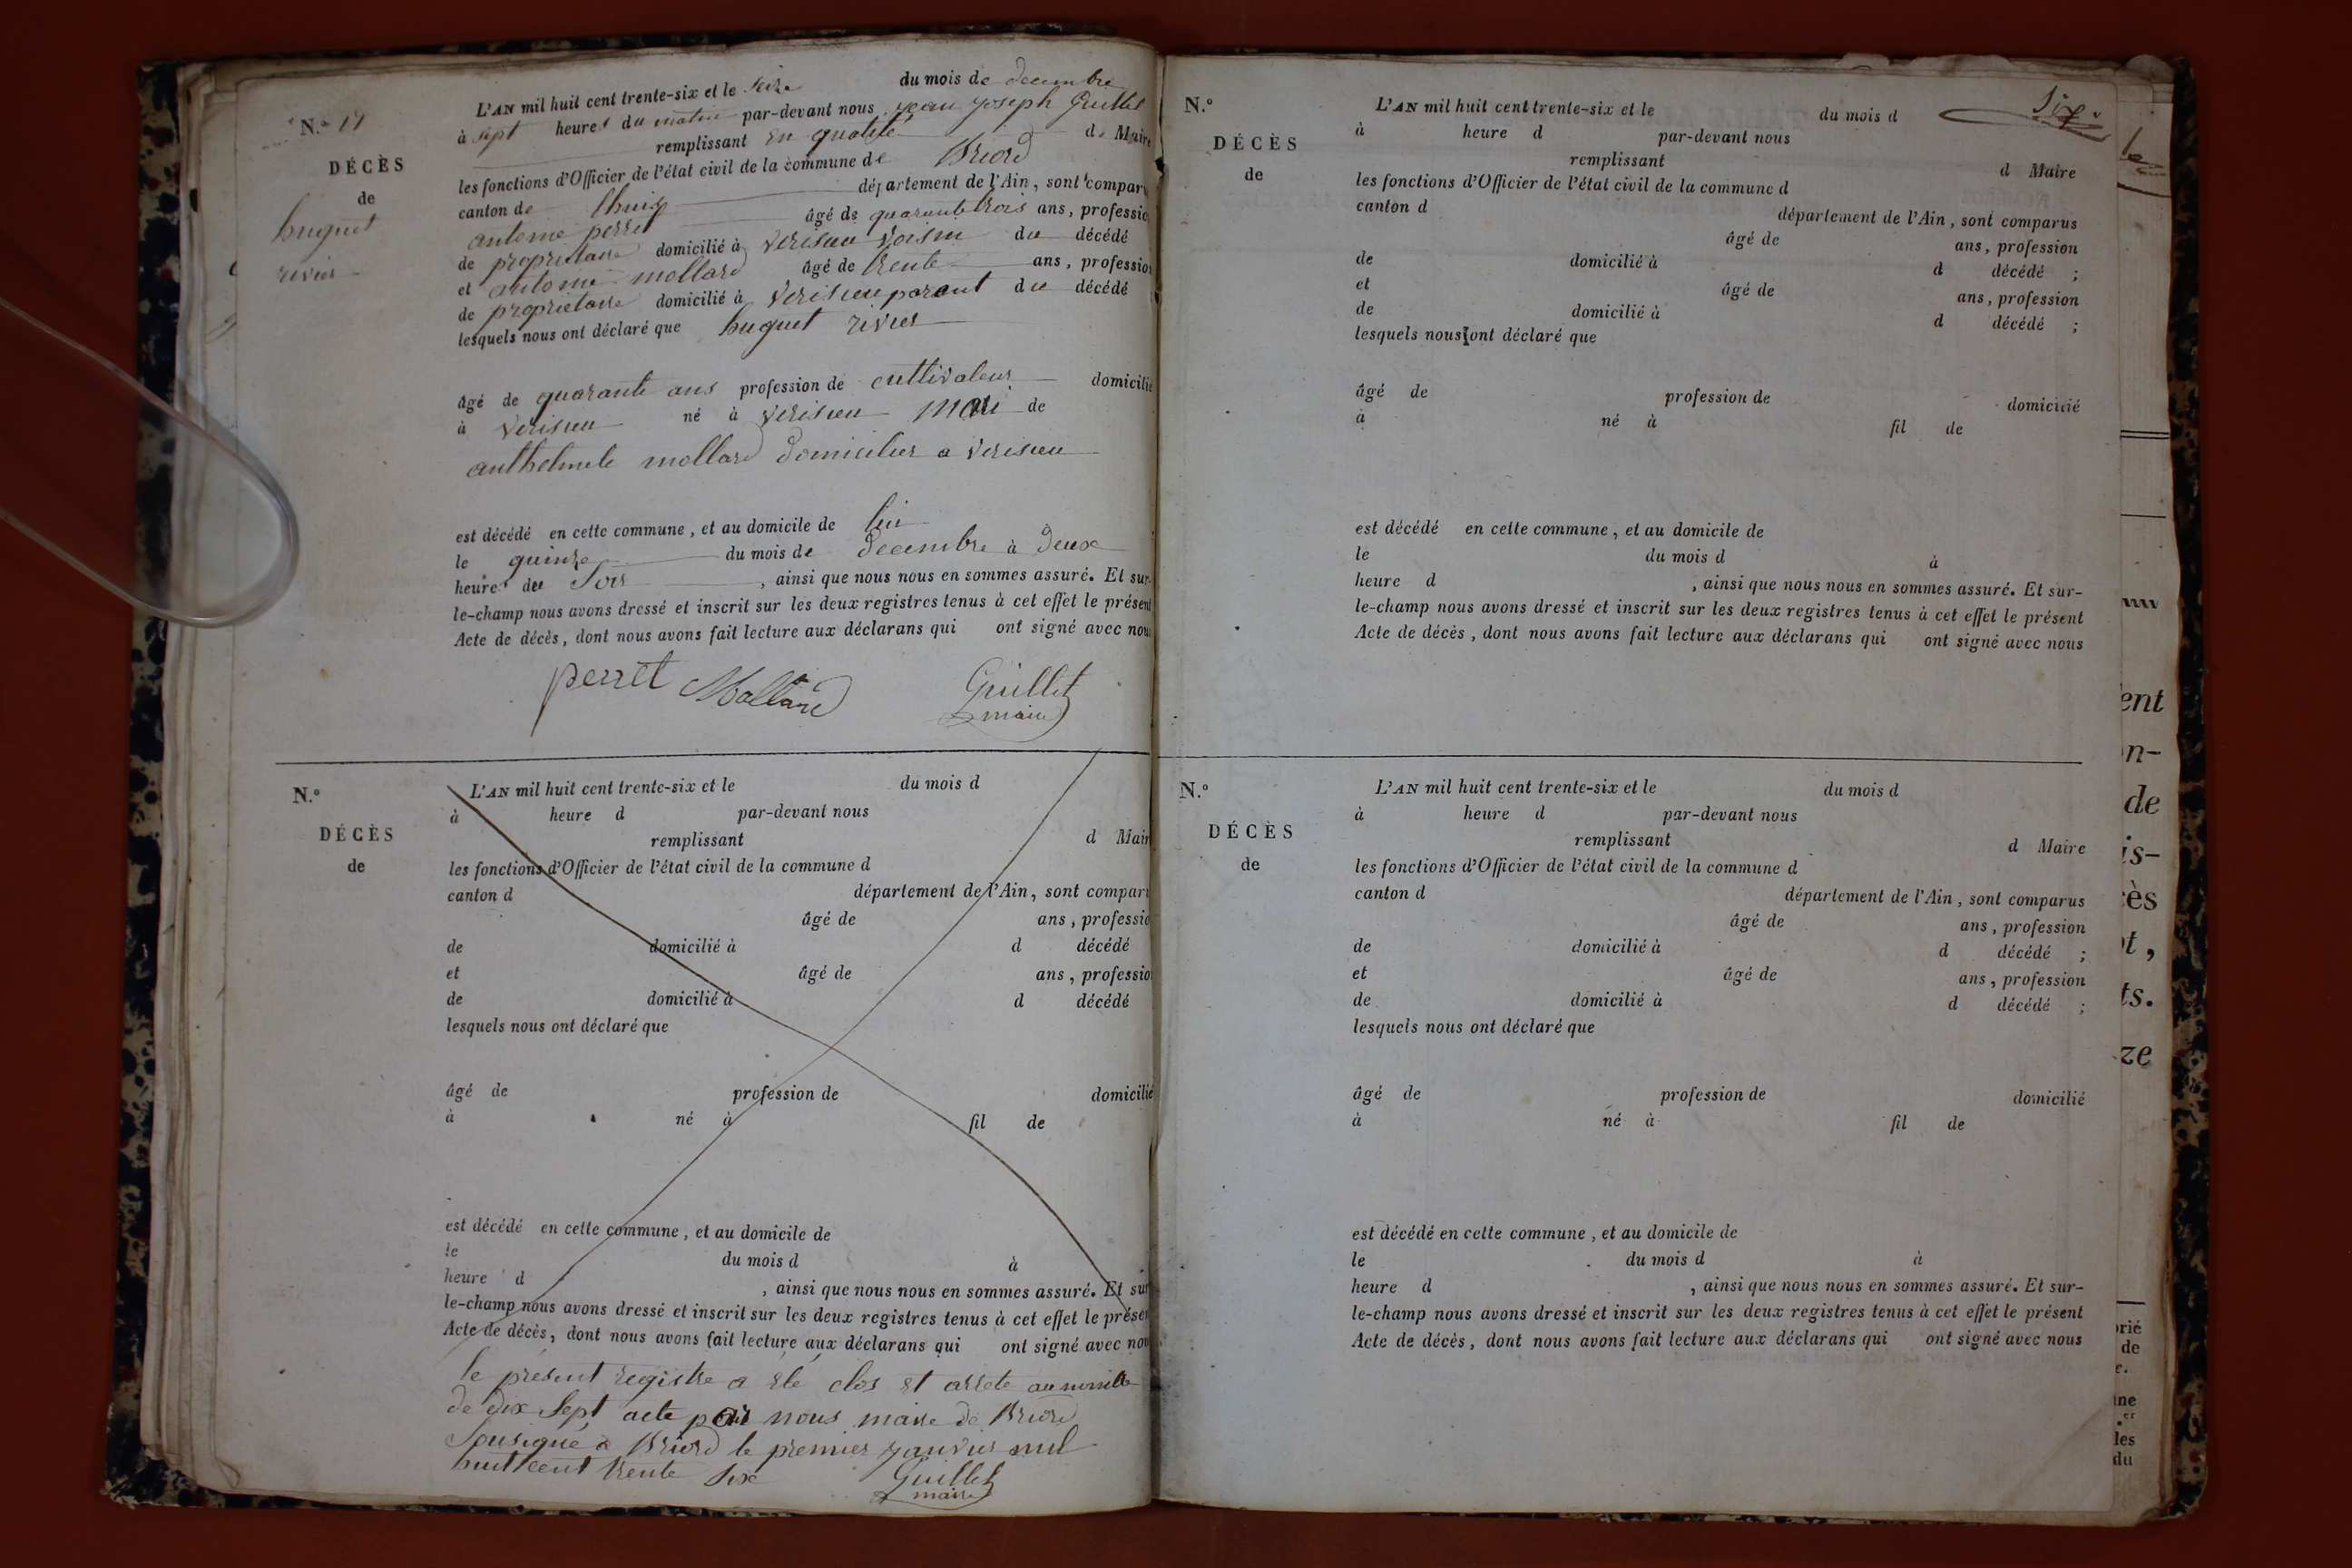 N.° 17
DÉCÈS
de
huguet
rivier
L'AN mil huit cent trente-six et le seize du mois de decembre
à sept heures du matin par-devant nous jean joseph Guillet
remplissant en qualité de Maire
les fonctions d'Officier de l'état civil de la commune de Briord
canton de lhuis département de l'Ain, sont comparu
antoine perret âgé de quarante trois ans, professio
de propriétaire domicilié à verisieu voisin du décédé
et antoine mollard âgé de trente ans, professio
de propriétaire domicilié à verisieu parent du décédé
lesquels nous ont déclaré que huguet rivier
âgé de quarante ans profession de cultivateur domicilié
à verisieu né à verisieu mari de
anthelmete mollard domicilier a verisieu
est décédé en cette commune, et au domicile de lui
le quinze du mois de decembre à deux
heures du soir, ainsi que nous nous en sommes assuré. Et sur-
le-champ nous avons dressé et inscrit sur les deux registres tenus à cet effet le présent
Acte de décès, dont nous avons fait lecture aux déclarans qui ont signé avec nous
perret Mollard Guillet
maire
N.°
DÉCÈS
de
L'AN mil huit cent trente-six et le du mois d
à heure d par-devant nous
remplissant d Mair
les fonctions d'Officier de l'état civil de la commune d
canton d département de l'Ain, sont comparu
âgé de ans, professio
de domicilié à d décédé
et âgé de ans, professio
de domicilié à d décédé
lesquels nous ont déclaré que
âgé de profession de domicilié
à né à fil de
est décédé en cette commune, et au domicile de
le du mois d à
heure d , ainsi que nous nous en sommes assuré. Et sur
le-champ nous avons dressé et inscrit sur les deux registres tenus à cet effet le présen
Acte de décès, dont nous avons fait lecture aux déclarans qui ont signé avec nou
le présent registre a été clos et arreté au nombre
de dix sept acte par nous maire de Briord
Sousigné a Briord le premier janvier mil
huit cent trente six Guillet
maire
Six
N.°
DÉCÈS
de
L'AN mil huit cent trente-six et le du mois d
à heure d par-devant nous
remplissant d Maire
les fonctions d'Officier de l'état civil de la commune d
canton d département de l'Ain, sont comparus
âgé de ans, profession
de domicilié à d décédé ;
et âgé de ans, profession
de domicilié à d décédé ;
lesquels nous ont déclaré que
âgé de profession de domicilié
à né à fil de
est décédé en cette commune, et au domicile de
le du mois d à
heure d , ainsi que nous nous en sommes assuré. Et sur-
le-champ nous avons dressé et inscrit sur les deux registres tenus à cet effet le présent
Acte de décès, dont nous avons fait lecture aux déclarans qui ont signé avec nous
N.°
DÉCÈS
de
L'AN mil huit cent trente-six et le du mois d
à heure d par-devant nous
remplissant d Maire
les fonctions d'Officier de l'état civil de la commune d
canton d département de l'Ain, sont comparus
âgé de ans, profession
de domicilié à d décédé ;
et âgé de ans, profession
de domicilié à d décédé ;
lesquels nous ont déclaré que
âgé de profession de domicilié
à né à fil de
est décédé en cette commune, et au domicile de
le du mois d à
heure d , ainsi que nous nous en sommes assuré. Et sur-
le-champ nous avons dressé et inscrit sur les deux registres tenus à cet effet le présent
Acte de décès, dont nous avons fait lecture aux déclarans qui ont signé avec nous